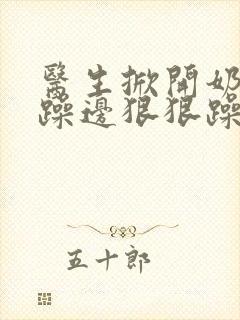 醫生掀開奶
躁邊狠狠躁
五十郎